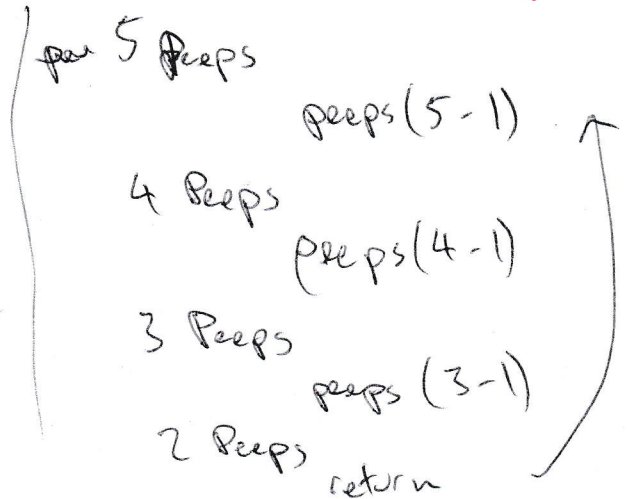 5 Peeps
peeps(5-1)
4 Peeps
peeps(4-1)
3 Peeps
peeps (3-1)
2 Peeps
return